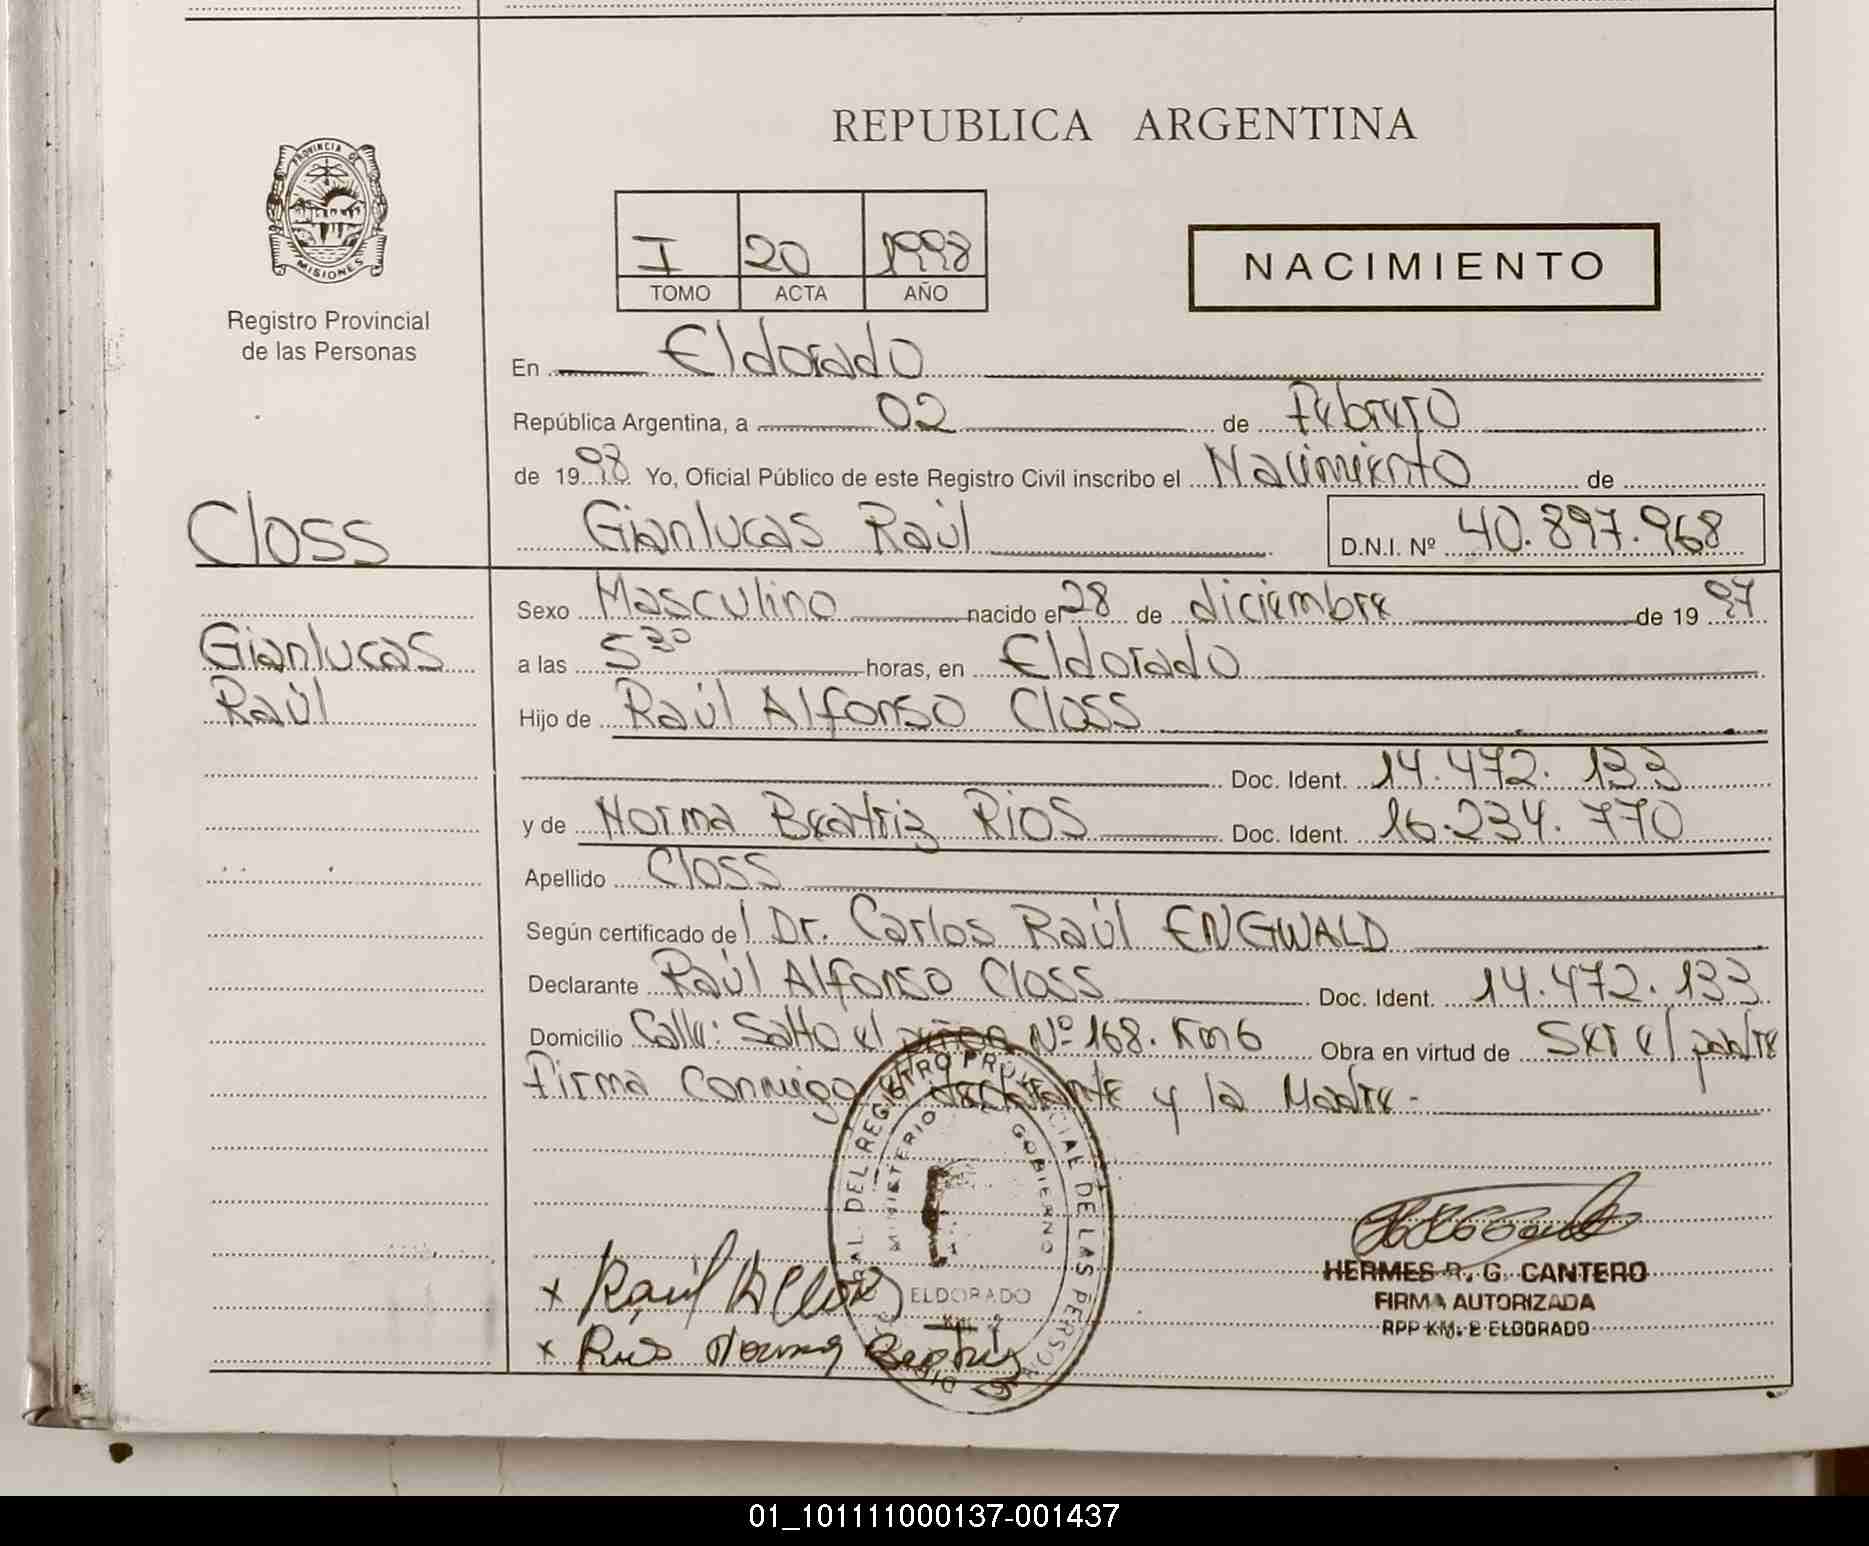 REPUBLICA ARGENTINA
PROVINCIA DE
MISIONES
Registro Provincial
de las Personas
I 20 1998
TOMO ACTA AÑO
NACIMIENTO
En Eldorado
República Argentina, a 02 de Febrero
de 1998 Yo, Oficial Público de este Registro Civil inscribo el Nacimiento de
Closs
Gianlucas Raúl D.N.I. Nº 40.897.968
Sexo Masculino nacido el 28 de diciembre de 1997
Gianlucas
Raúl
a las 5 30 horas, en Eldorado
Hijo de Raúl Alfonso Closs
Doc. Ident. 14.472.133
y de Norma Beatriz Rios Doc. Ident. 16.234.770
Apellido Closs
Según certificado del Dr. Carlos Raúl ENGWALD
Declarante Raúl Alfonso Closs Doc. Ident. 14.472.133
Domicilio Calle: Salto el Nº 168. Km 6 Obra en virtud de Ser el padre
Firma Conmigo declarante y la Madre-
REGISTRO PROVINCIAL DE LAS PERSONAS
MINISTERIO GOBIERNO
ELDORADO
x Raúl A Closs
x Rios Norma Beatriz
HERMES R. G. CANTERO
FIRMA AUTORIZADA
RPP KM. 2 ELDORADO
01_101111000137-001437